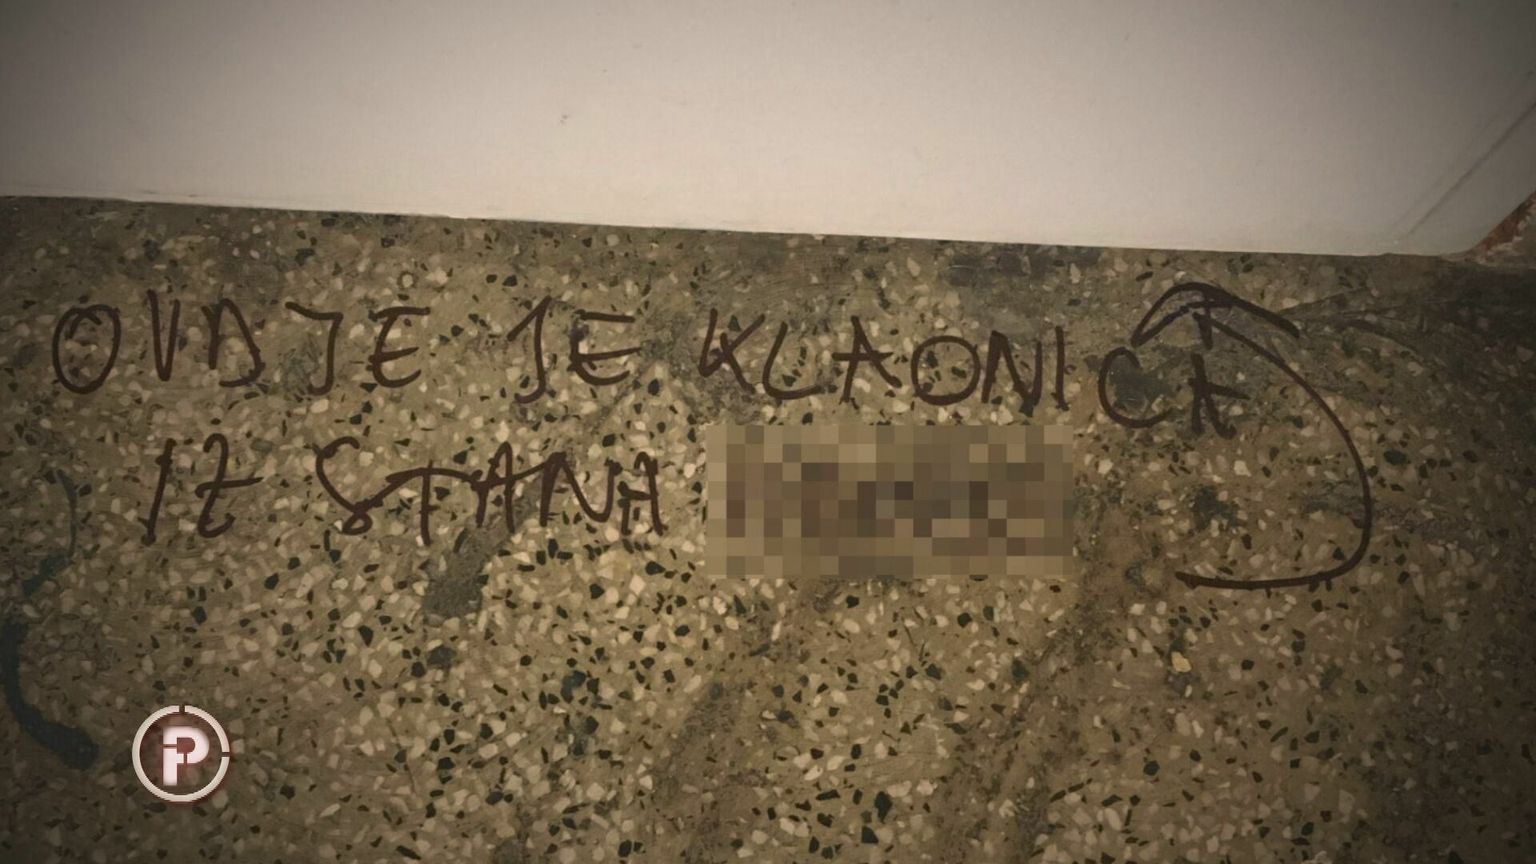 OVDJE JE KLAONICA
IZ STANA
P